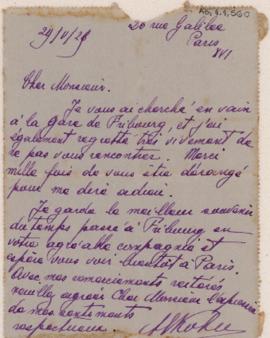 20 rue Galilée
Paris
XVI
29/V/28
Cher Monsieur.
Je vous ai cherché en vain
à la gare de Fribourg, et j'ai
également regretté très vivement de
ne pas vous rencontrer. Merci
mille fois de vous être dérangé
pour me dire adieu.
Je garde le meilleur souvenir
du temps passé à Fribourg en
votre agréable compagnie et
espère vous voir bientôt à Paris.
Avec mes remerciements réitérés
veuillez agréer Cher Monsieur l'expression
de mes sentiments
respectueux.